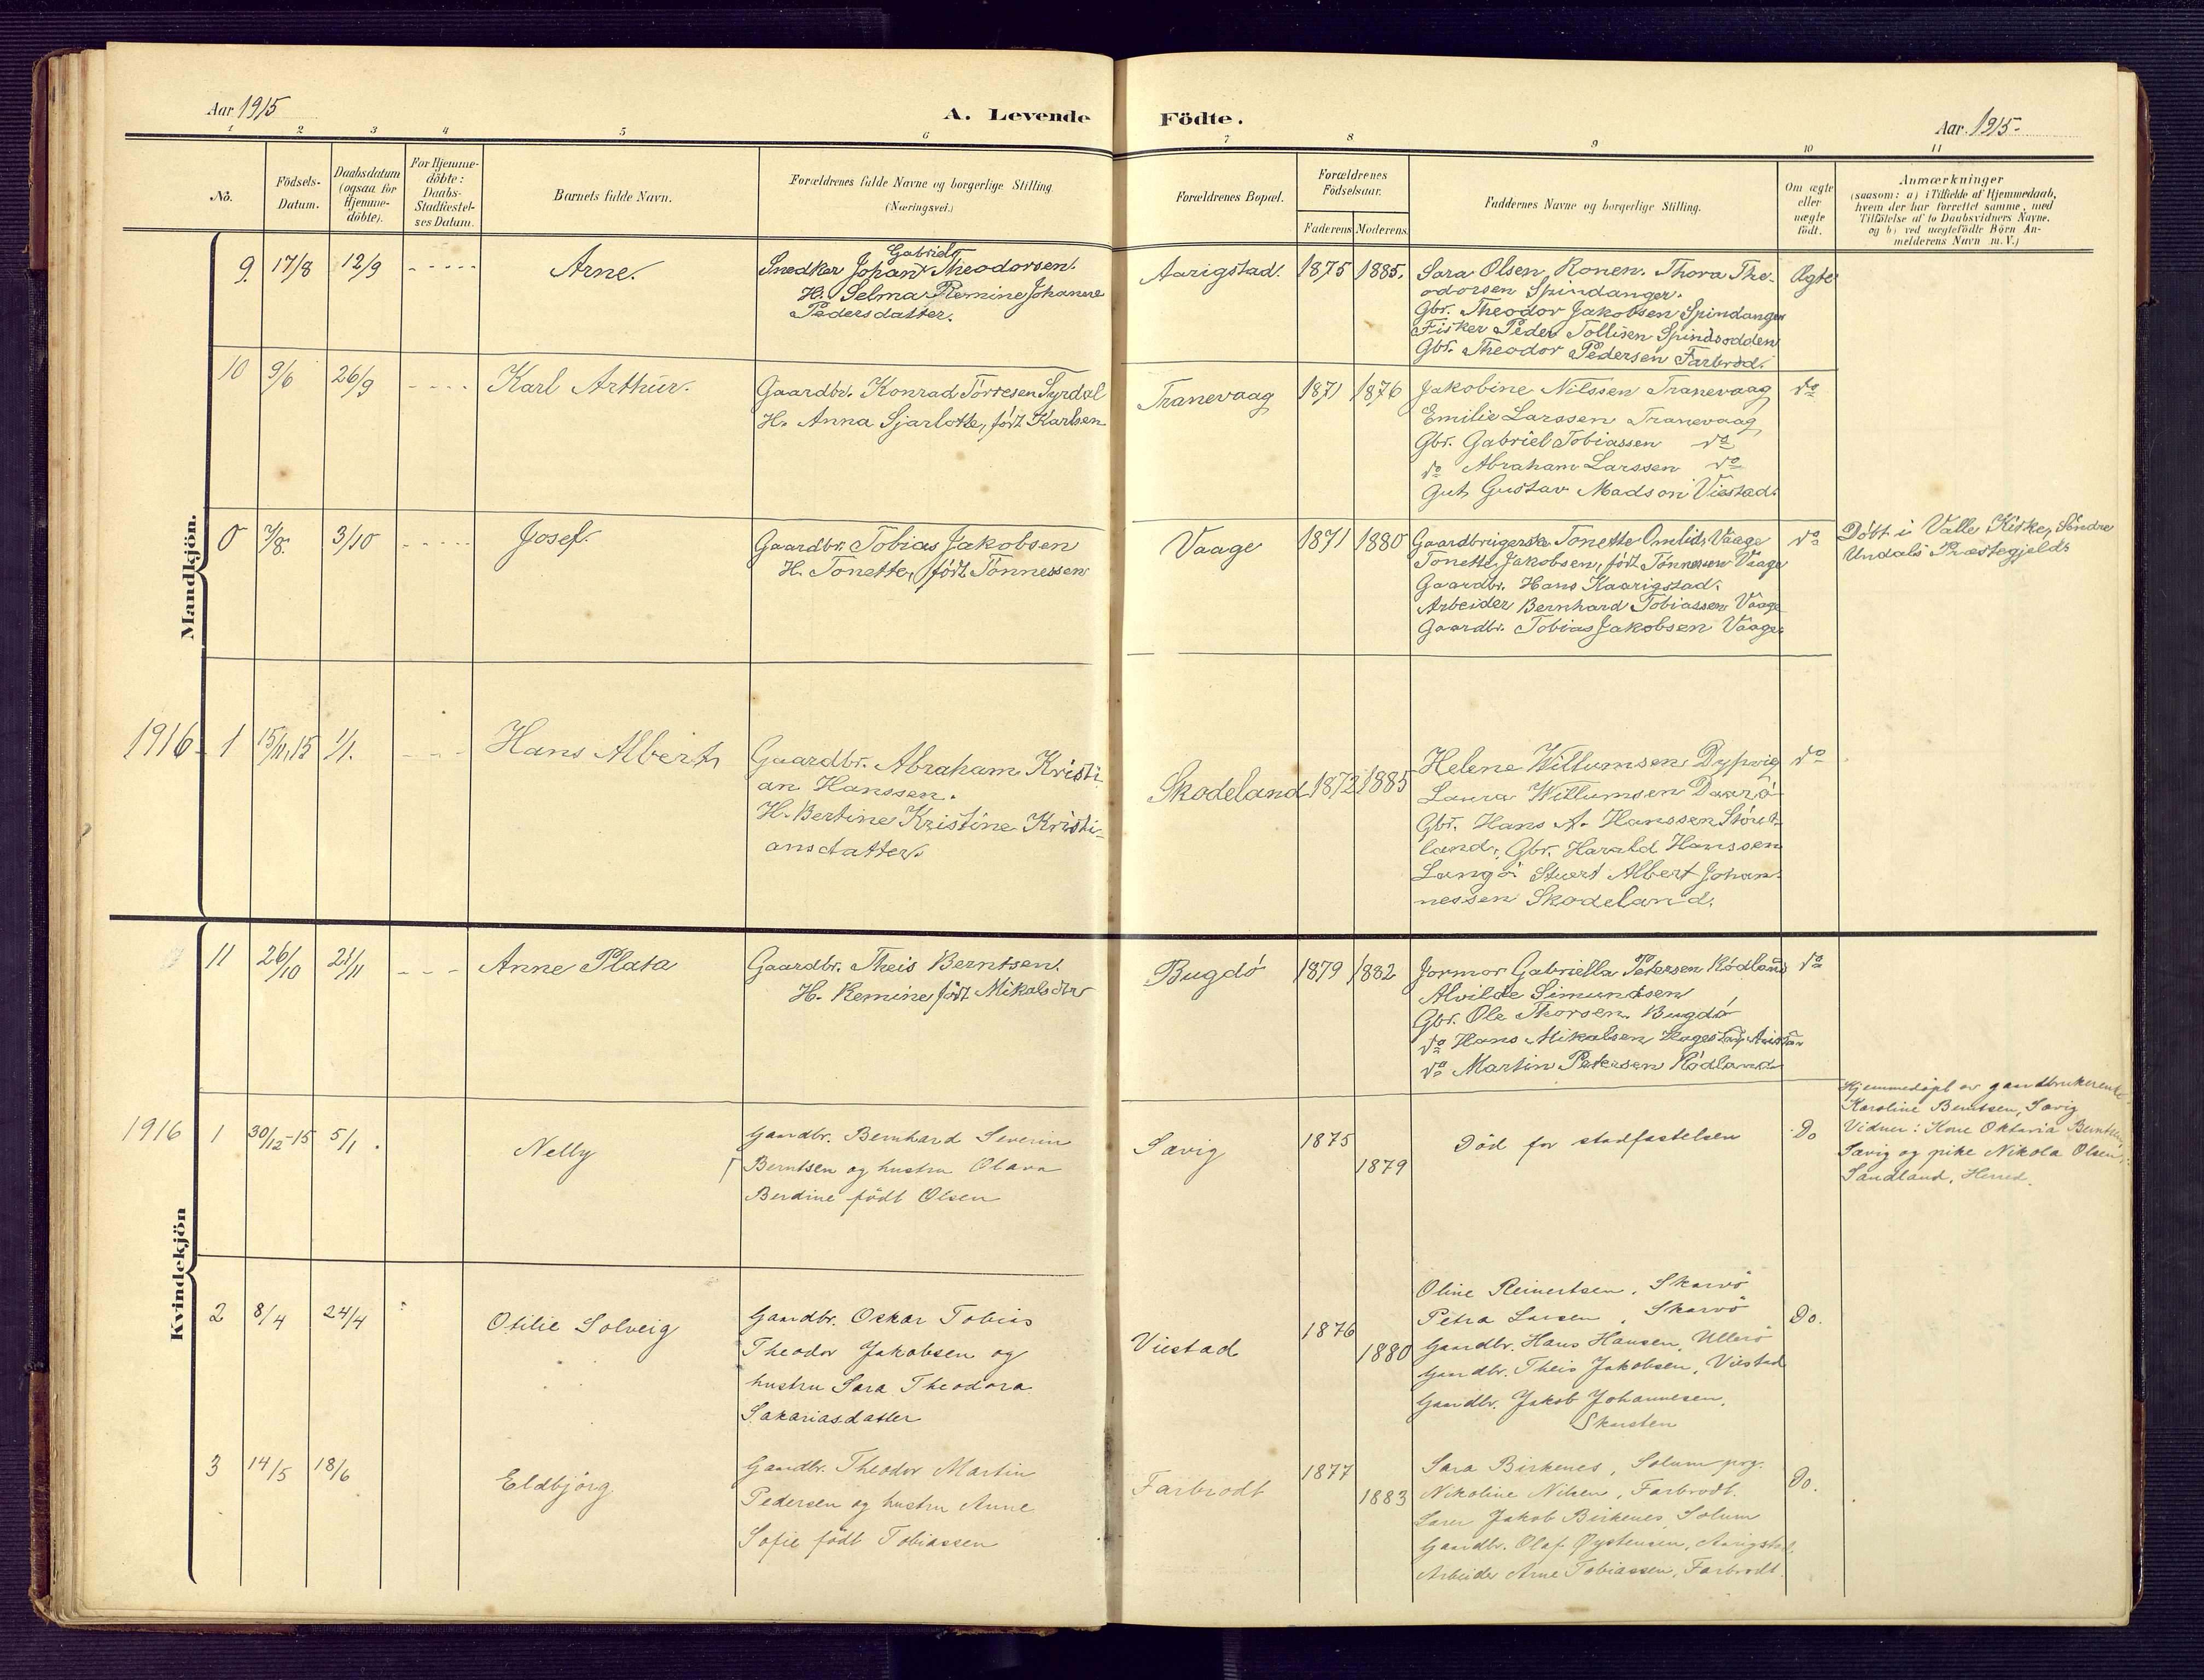 Aar 1915
A. Levende Födte.
Aar 1915.
1 2 3 4 5 6 7 8 9 10 11
No.
Födsels-
Datum.
Daabsdatum
(ogsaa for
Hjemme-
döbte).
For Hjemme-
döbte:
Daabs-
Stadfæstel-
ses Datum.
Barnets fulde Navn.
Forældrenes fulde Navne og borgerlige Stilling.
(Næringsvei.)
Forældrenes Bopæl.
Forældrenes
Födselsaar.
Faderens Moderens.
Faddernes Navne og borgerlige Stilling.
Om ægte
eller
uægte
födt.
Anmærkninger
(saasom: a) i Tilfælde af Hjemmedaab,
hvem der har forrettet samme, med
Tilföielse af to Daabsvidners Navne.
og b) ved uægtefödte Börn An-
melderens Navn m. V.)
Mandkjön.
9. 17/8 12/9 - - - - - Arne.
Gabriel
Snedker Johan Theodorsen.
H. Selma Remine Johanne
Pedersdatter.
Aarigstad. 1875 1885.
Sara Olsen, Ronen. Thora The-
odorsen Spindanger.
Gbr. Theodor Jakobsen Spindanger
Fisker Peder Tollisen Spindsodden
Gbr. Theodor Pedersen Farbrod.
Ægte
10 9/6 26/9 - - - - Karl Arthur.
Gaardbr. Konrad Torresen Syrdal
H. Anna Sjarlotte, födt Karlsen
Tranevaag 1871 1876
Jakobine Nilssen Tranevaag
Emilie Larssen Tranevaag
Gbr. Gabriel Tobiassen do
do Abraham Larssen do
Gut Gustav Madson Viestad.
do
0 7/8. 3/10 - - - - - Josef
Gaardbr. Tobias Jakobsen
H. Tonette, födt Tönnessen
Vaage 1871 1880
Gaardbrugerske Tonette Omlid, Vaage
Tonette Jakobsen, födt Tönnessen Vaage
Gaardbr. Hans Kaarigstad.
Arbeider Bernhard Tobiassen Vaage
Gaardbr. Tobias Jakobsen Vaage
do
Döbt i Valle Kirke, Söndre
Undals Præstegjeld.
1916 1 15/11.15 1/1. - - - Hans Albert
Gaardbr. Abraham Kristi-
an Hanssen.
H. Bertine Kristine Kristi-
ansdatter.
Skodeland 1872 1885
Helene Willumsen Dypvig
Laura Willumsen
Gbr. Hans A. Hanssen
land, Gbr. Harald Hanssen
Langö Albert Johan-
nessen Skodeland.
do
Kvindekjön
11 26/10 21/11 - - - Anne Plata
Gaardbr. Theis Berntsen.
H. Remine födt Mikalsdtr
Bugdö 1879 1882
Jormor Gabriella Petersen Rödland
Alvilde Simundsen
Gbr. Ole Thorsen. Bugdö
do Hans Mikalsen
do Martin Petersen Rödland
do
1916 1 30/12-15 5/1. Nelly
Gaardbr. Bernhard Severin
Berntsen og hustru Olava
Berdine födt Olsen
Sævig 1875 1879
Död for stadfæstelsen
Do
Hjemmedöpt av gaardbrukerenke
Karoline Berntsen, Sævig
Vidner: Kone Oktavia Berntsen,
Sævig og pike Nikola Olsen,
Sandland, Herred.
2 8/4 24/4 Otilie Solveig
Gaardbr. Oskar Tobias
Theodor Jakobsen og
hustru Sara Theodora
Sakariasdatter
Viestad 1876 1880
Oline Reinertsen, Skarvö
Petra Larsen, Skarvö
Gaardbr. Hans Hansen, Ullerö
Gaardbr. Theis Jakobsen, Viestad
Gaardbr. Jakob Johannesen,
Skarsten
Do.
3 14/5 18/6 Eldbjörg
Gaardbr. Theodor Martin
Pedersen og hustru Anne
Sofie födt Tobiassen
Farbrodt 1877 1883
Sara Birkenes, Solum prg.
Nikoline Nilsen, Farbrodt.
Lærer Jakob Birkenes, Solum
Gaardbr. Olaf Øystensen, Aarigstad,
Arbeider Arne Tobiassen, Farbrodt.
Do.